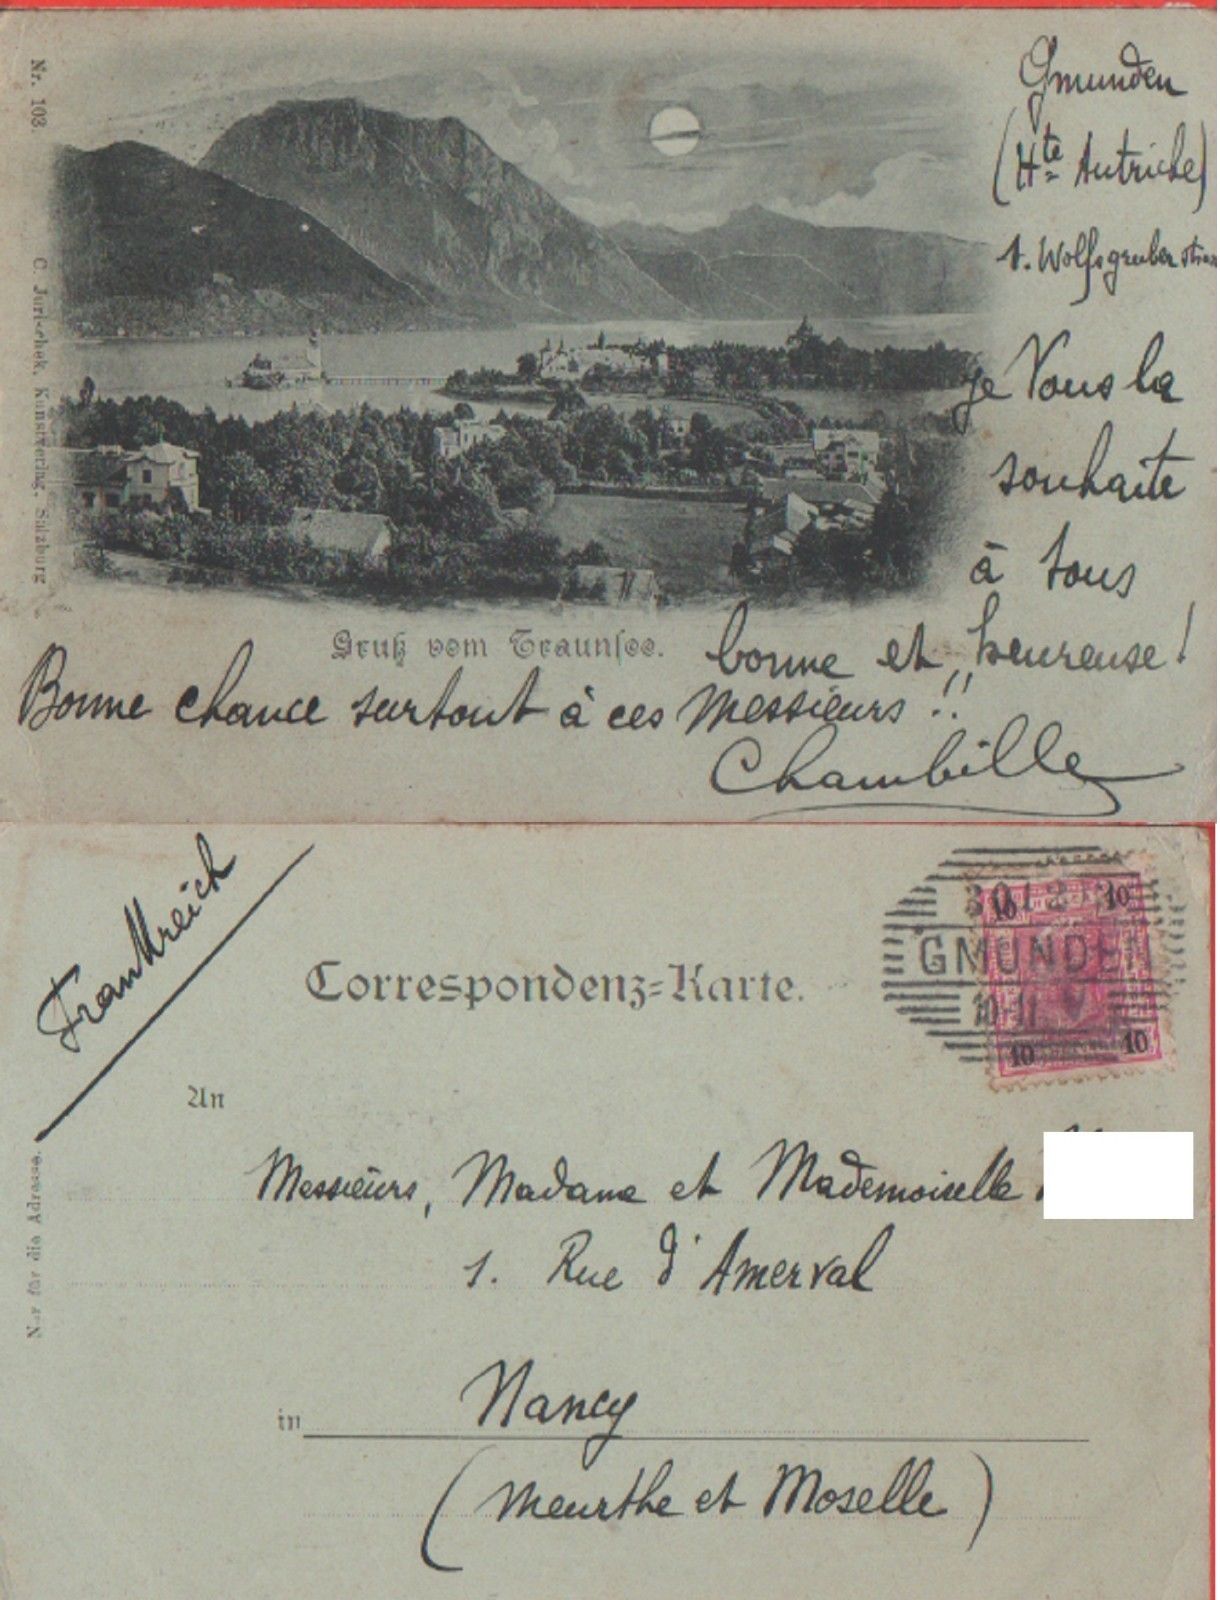 Nr. 103.
C. Jurischek, Kunstverlag, Salzburg
Gmunden
(Hte Autriche)
1. Wolfsgruber stras
je Vous la
souhaite
à tous
bonne et heureuse!
Gruß vom Traunsee.
Bonne chance surtout à ces Messieurs!!
Chambille
Frankreich
Correspondenz=Karte.
10 10
GMUNDEN
10-11 V
10 10
An
Messieurs, Madame et Mademoiselle
1. Rue d'Amerval
in Nancy
(Meurthe et Moselle)
Nur für die Adresse.